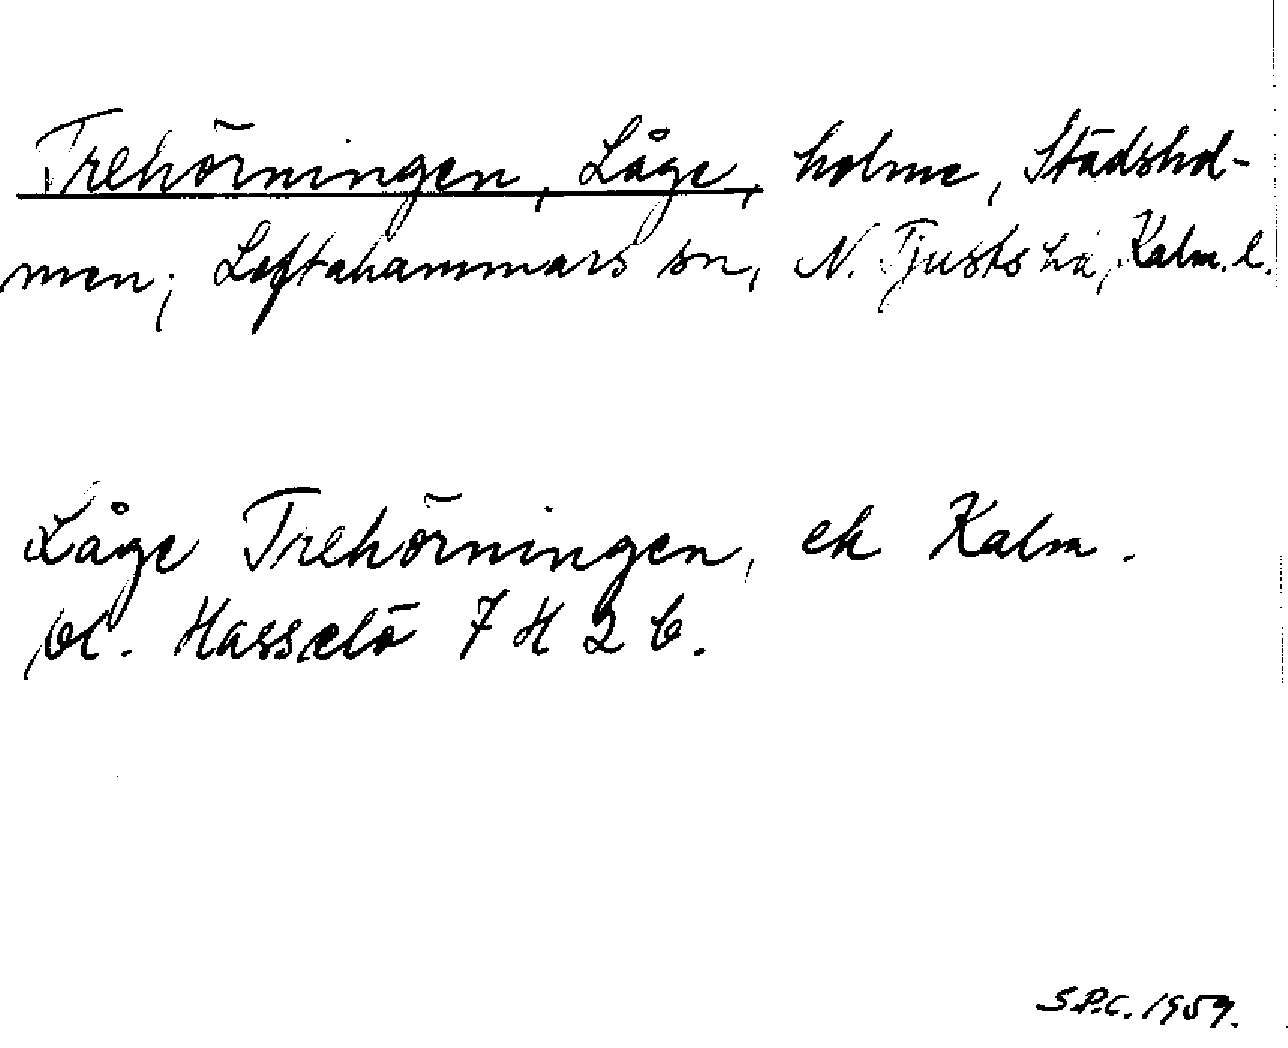 Trehörningen, Låge, holme, Städshol-
men; Loftahammars sn, N. Tjusts hd, Kalm. l.
Låge Trehörningen, ek Kalm.
bl. Hasselö 7 H 2 b.
S.P.C. 1959.